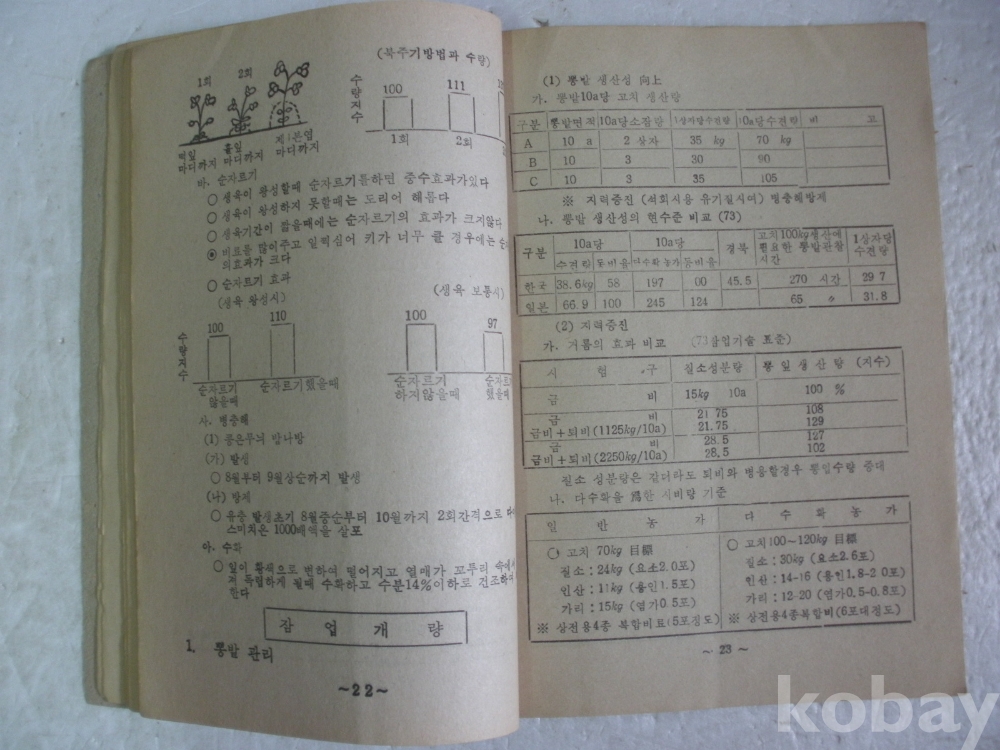 (북주기방법과 수량)
1회 2회
수량지수
100 111
1회 2회
떡잎 마디까지 홑잎 마디까지 제1본엽 마디까지
바. 순자르기
○ 생육이 왕성할때 순자르기를하면 증수효과가있다
○ 생육이 왕성하지 못할때는 도리어 해롭다
○ 생육기간이 짧을때에는 순자르기의 효과가 크지않다
◉ 비료를 많이주고 일찍심어 키가 너무 클 경우에는
의효과가 크다
○ 순자르기 효과
(생육 왕성시) (생육 보통시)
수량지수
100 110 100 97
순자르기 않을때 순자르기했을때 순자르기 하지않을때 순자르기 했을때
사. 병충해
(1) 콩은무늬 밤나방
(가) 발생
○ 8월부터 9월상순까지 발생
(나) 방제
○ 유충 발생초기 8월중순부터 10월까지 2회간격으로
스미치온 1000배액을 살포
아. 수확
○ 잎이 황색으로 변하여 떨어지고 열매가 꼬투리 속에서
저 독립하게 될때 수확하고 수분14%이하로 건조하여
한다
잠 업 개 량
1. 뽕밭 관리
~22~
(1) 뽕밭 생산성 向上
가. 뽕밭10a당 고치 생산량
구분 뽕밭면적 10a당소잠량 1상자당수견량 10a당수견량 비 고
A 10 a 2 상자 35 kg 70 kg
B 10 3 30 90
C 10 3 35 105
※ 지력증진 (석회시용 유기질시여) 병충해방제
나. 뽕밭 생산성의 현수준 비교 (73)
구분 10a당 10a당 경북 고치100kg생산에 필요한 뽕밭관찰 시간 1상자당 수견량
수견량 동비율 다수확 농가 동비율
한국 38.6kg 58 197 00 45.5 270 시간 29.7
일본 66.9 100 245 124 65 〃 31.8
(2) 지력증진
가. 거름의 효과 비교 (73잠업기술 표준)
시 험 구 질소성분량 뽕잎생산량 (지수)
금 비 15kg 10a 100 %
금 비 21.75 108
금비+퇴비(1125kg/10a) 21.75 129
금 비 28.5 127
금비+퇴비(2250kg/10a) 28.5 102
질소 성분량은 같더라도 퇴비와 병용할경우 뽕잎수량 증대
나. 다수확을 爲한 시비량 기준
일 반 농 가 다 수 확 농 가
○ 고치 70kg 目標 ○ 고치100~120kg 目標
질소:24kg (요소2.0포) 질소:30kg (요소2.6포)
인산:11kg (용인1.5포) 인산:14-16 (용인1.8-2.0포)
가리:15kg (염가0.5포) 가리:12-20 (염가0.5-0.8포)
※ 상전용4종 복합비료(5포정도) ※ 상전용4종복합비(6포대정도)
~ 23 ~
kobay